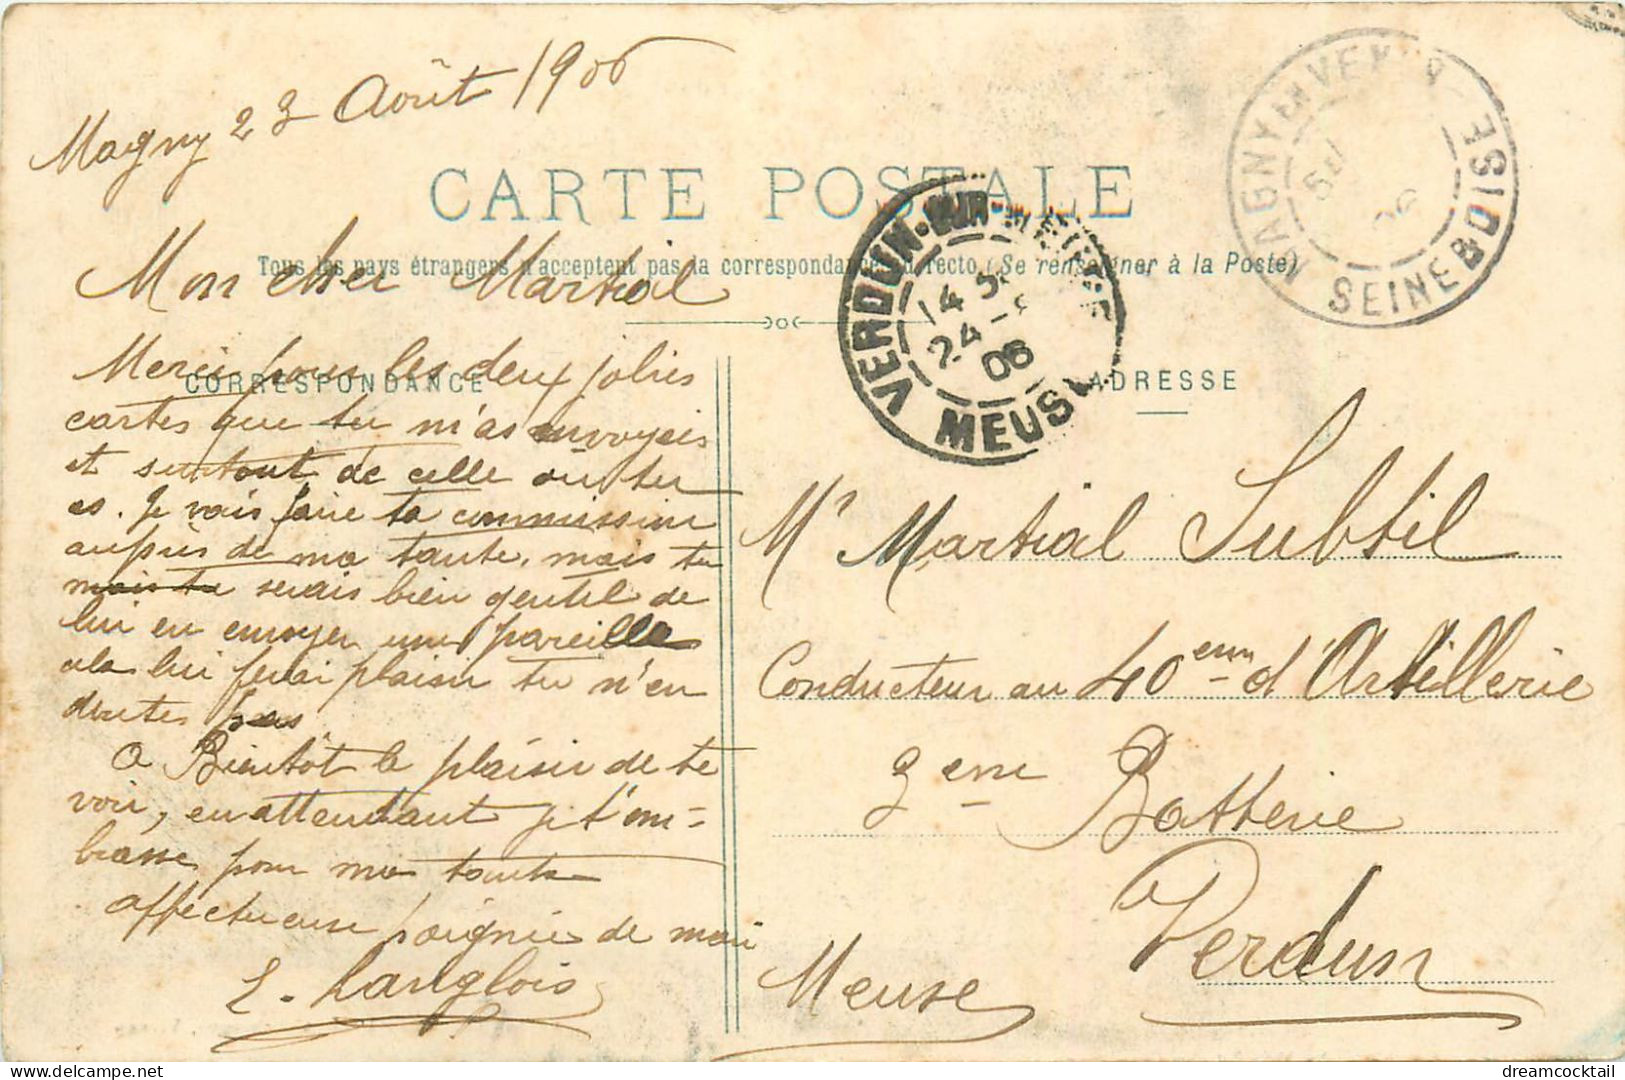 Magny 23 Août 1906
CARTE POSTALE
Tous les pays étrangers n'acceptent pas la correspondance au recto (Se renseigner à la Poste)
Mon cher Martial
CORRESPONDANCE
Merci pour les deux jolies
cartes que tu m'as envoyées
et surtout de celle où tu
es. Je vais faire ta commission
auprès de ma tante, mais tu
mais tu serais bien gentil de
lui en envoyer une pareille
cela lui ferai plaisir tu n'en
doutes pas
A Bientôt le plaisir de te
voir, en attendant je t'em-
brasse pour ma tante
affectueuse poignée de main
E. Langlois
ADRESSE
Mr Martial Subtil
Conducteur au 40eme d'Artillerie
3eme Batterie
Verdun
Meuse
VERDUN-SUR-MEUSE
14 5
24 -8
06
MEUSE
MAGNY EN VEXIN
SEINE & OISE
06
dreamcocktail